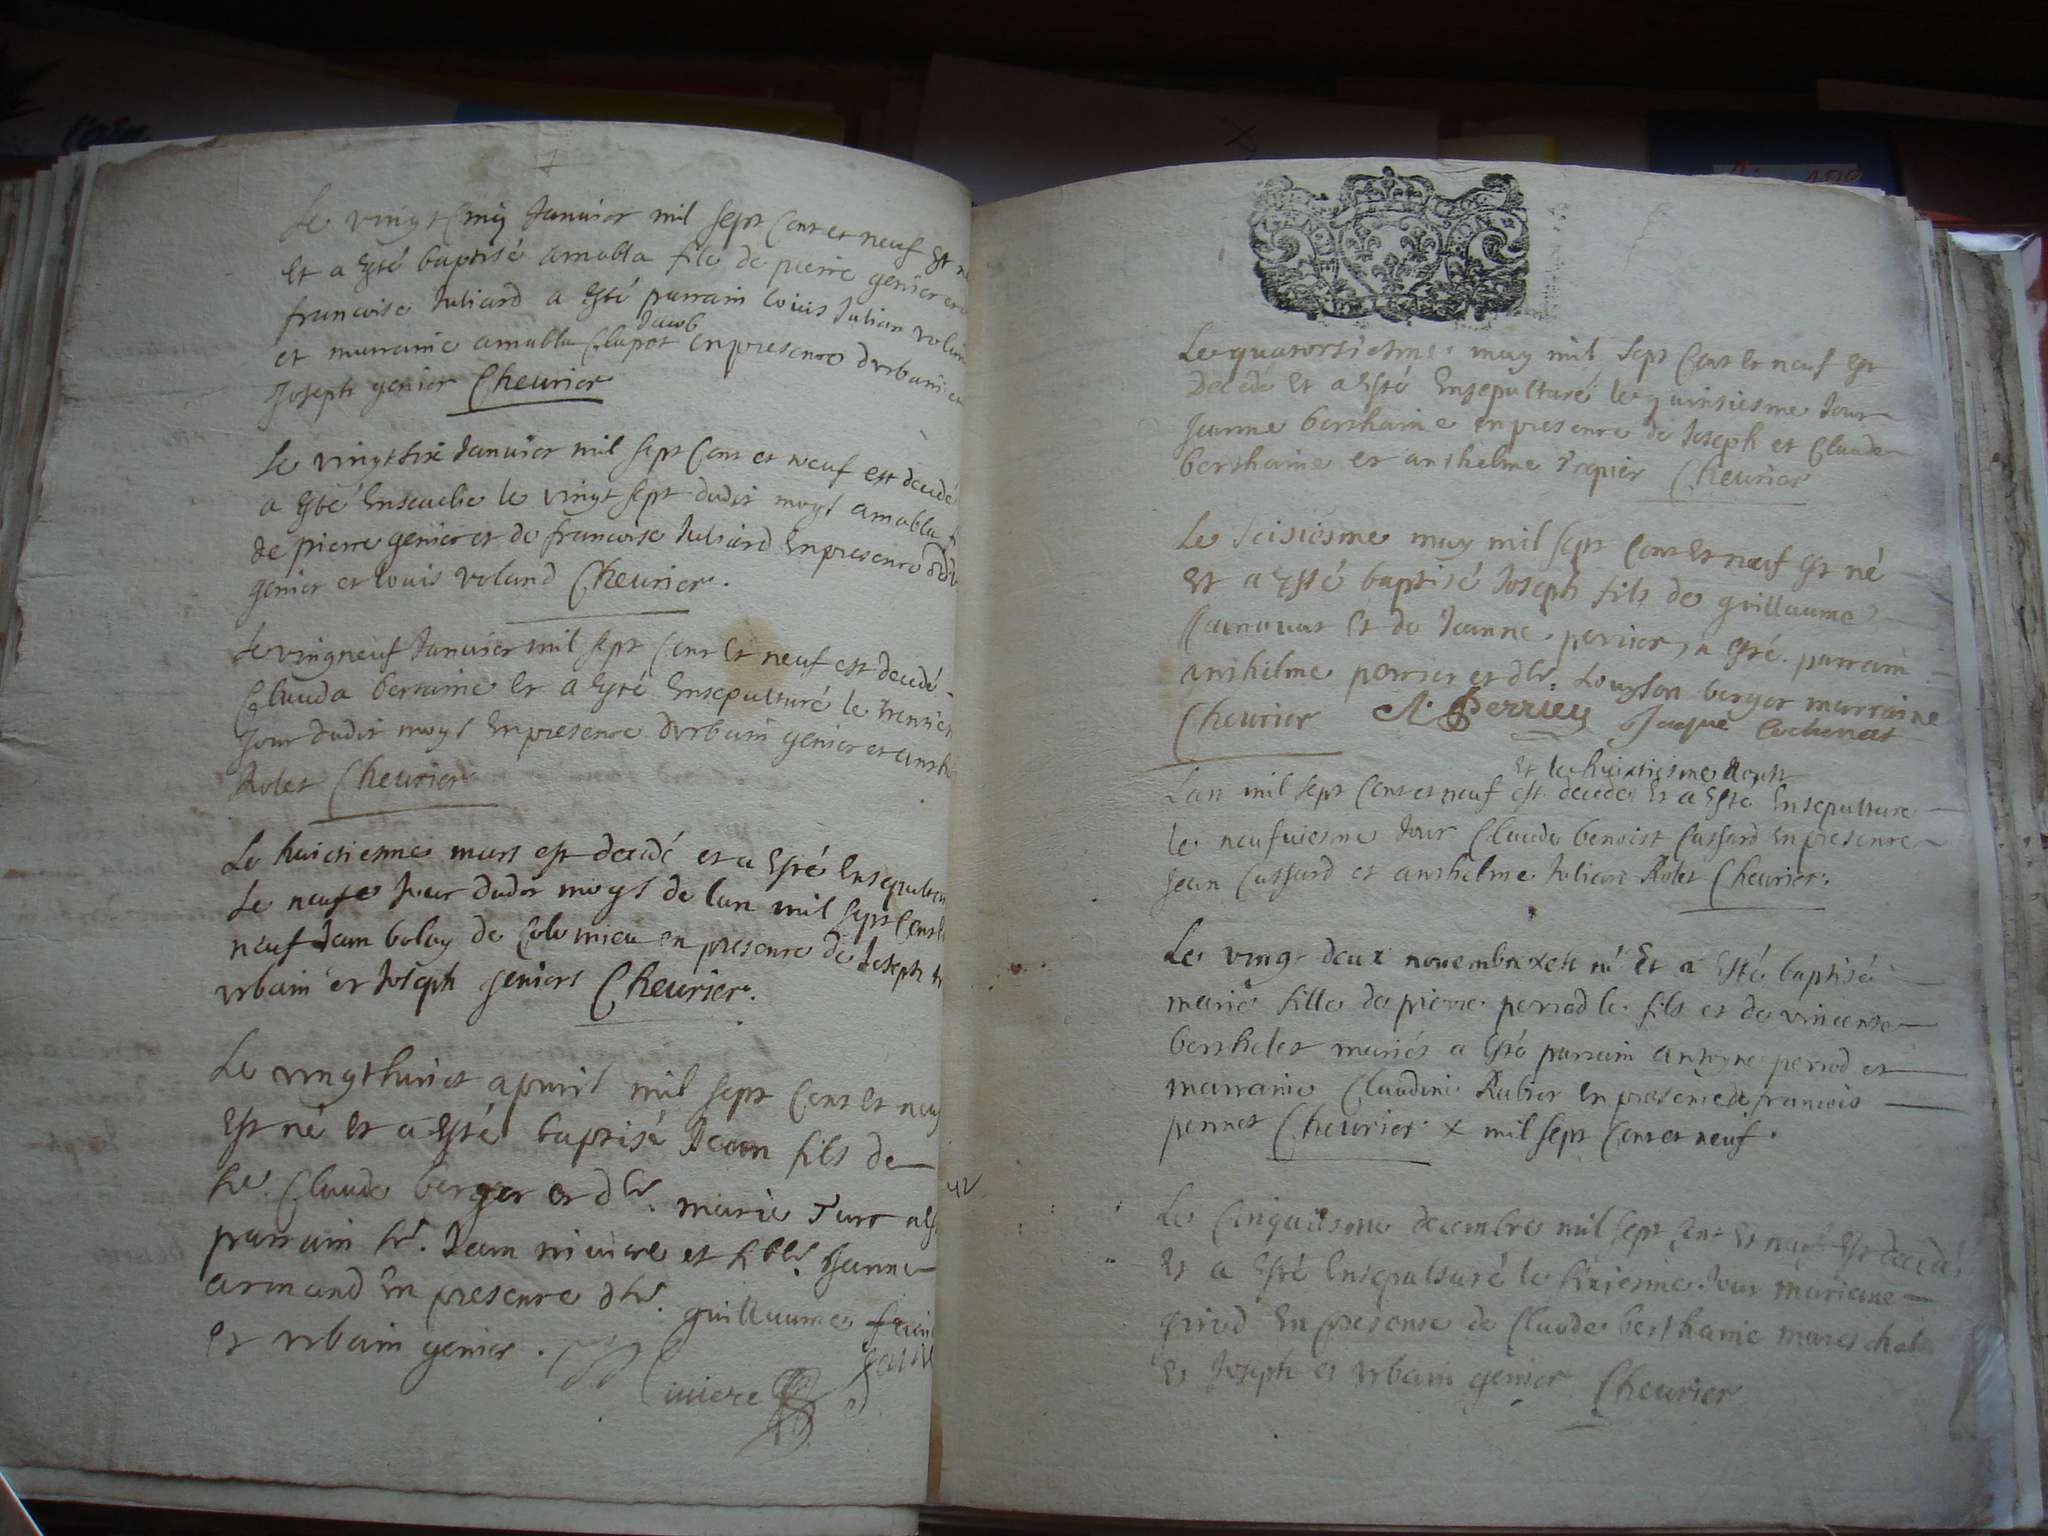 Le vingt Cinq Januier mil sept Cent et neuf Est né
Et a Esté baptisé amabla file de pierre genier et
francoise Juliard a Esté parrain louis Julian volan
Jacob
et marraine amabla Clapot en presence d'vrbain et
Joseph genier Cheurier
Le vingt six Januier mil sept Cent et neuf est decedé
a Esté Enseuelie le vingt sept dudit moys amabla f
de pierre genier et de francoise Juliard En presence dud
genier et louis voland Cheurier.
Le vingneuf Januier mil sept Cent Et neuf est decedé
Clauda bertaine Et a Esté Ensepulturé le trentien
Jour dudit moys En presence d'vrbain genier et ansh
Rolet Cheurier
Le huictiesme mars est decedé et a Esté Ensepultu
Le neufe Jour dudit moys de lan mil sept Cent
neuf Jean boloy de Colomieu en presence de Joseph
vrbain et Joseph geniers Cheurier.
Le vingthuict apuril mil sept Cent Et neuf
Est né Et a Esté baptisé Jean fils de
Claude berger et dle. marie
parrain Sr. Jean riuiere et Jeanne
armand En presence guillaume
Et vrbain genier.
riuiere
42
Le quatorsiesme may mil sept Cent Et neuf Est
Decedé Et a Esté Ensepulturé le quinsiesme Jour
Jeanne berthaine en presence de Joseph et Claude
berthaine et anthelme Cheurier
Le seisiesme may mil sept Cent Et neuf Est né
Et a Esté baptisé Joseph fils de guillaume
Et de Jeanne perrier, a Esté parrain
anthelme perrier et dle. Louyson berger marraine
Cheurier A. Perrier Jaque Cochonat
Et le huictiesme Aoust
Lan mil sept Cent et neuf est decedé Et a Esté Ensepulture
le neufuiesme Jour Claude benoist Cassard En presence
Jean Cassard et anthelme Julian Rolet Cheurier.
Le vingt deux nouembre x est né Et a Esté baptisé
marie fille de pierre perrod le fils et de vincense
berthelet mariés a Esté parrain antoyne perrod et
marraine Claudine Rubier En presence de francois
pernet Cheurier x mil sept Cent et neuf.
Le Cinquiesme decembre mil sept Cent Et neuf Est decedé
Et a Esté Ensepulturé le sixiesme Jour mariane
girod En presense de Claude berthanie mareschal
Et Joseph et vrbain genier Cheurier